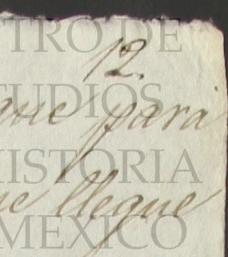 TRO DE
12.
TUDIOS
que para
HISTORIA
ue llegue
MEXICO